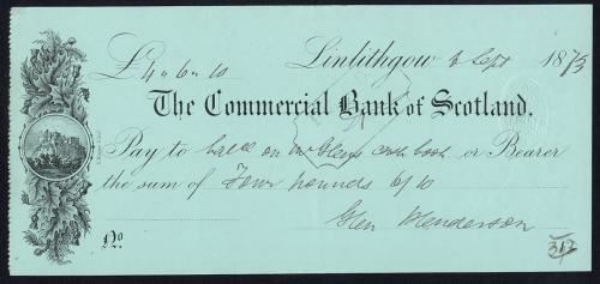 £4" 6" 10 Linlithgow 8 Sept 1873
The Commercial Bank of Scotland.
Pay to on cash book or Bearer
the sum of Four pounds 6/10
Glen Henderson
No.
312